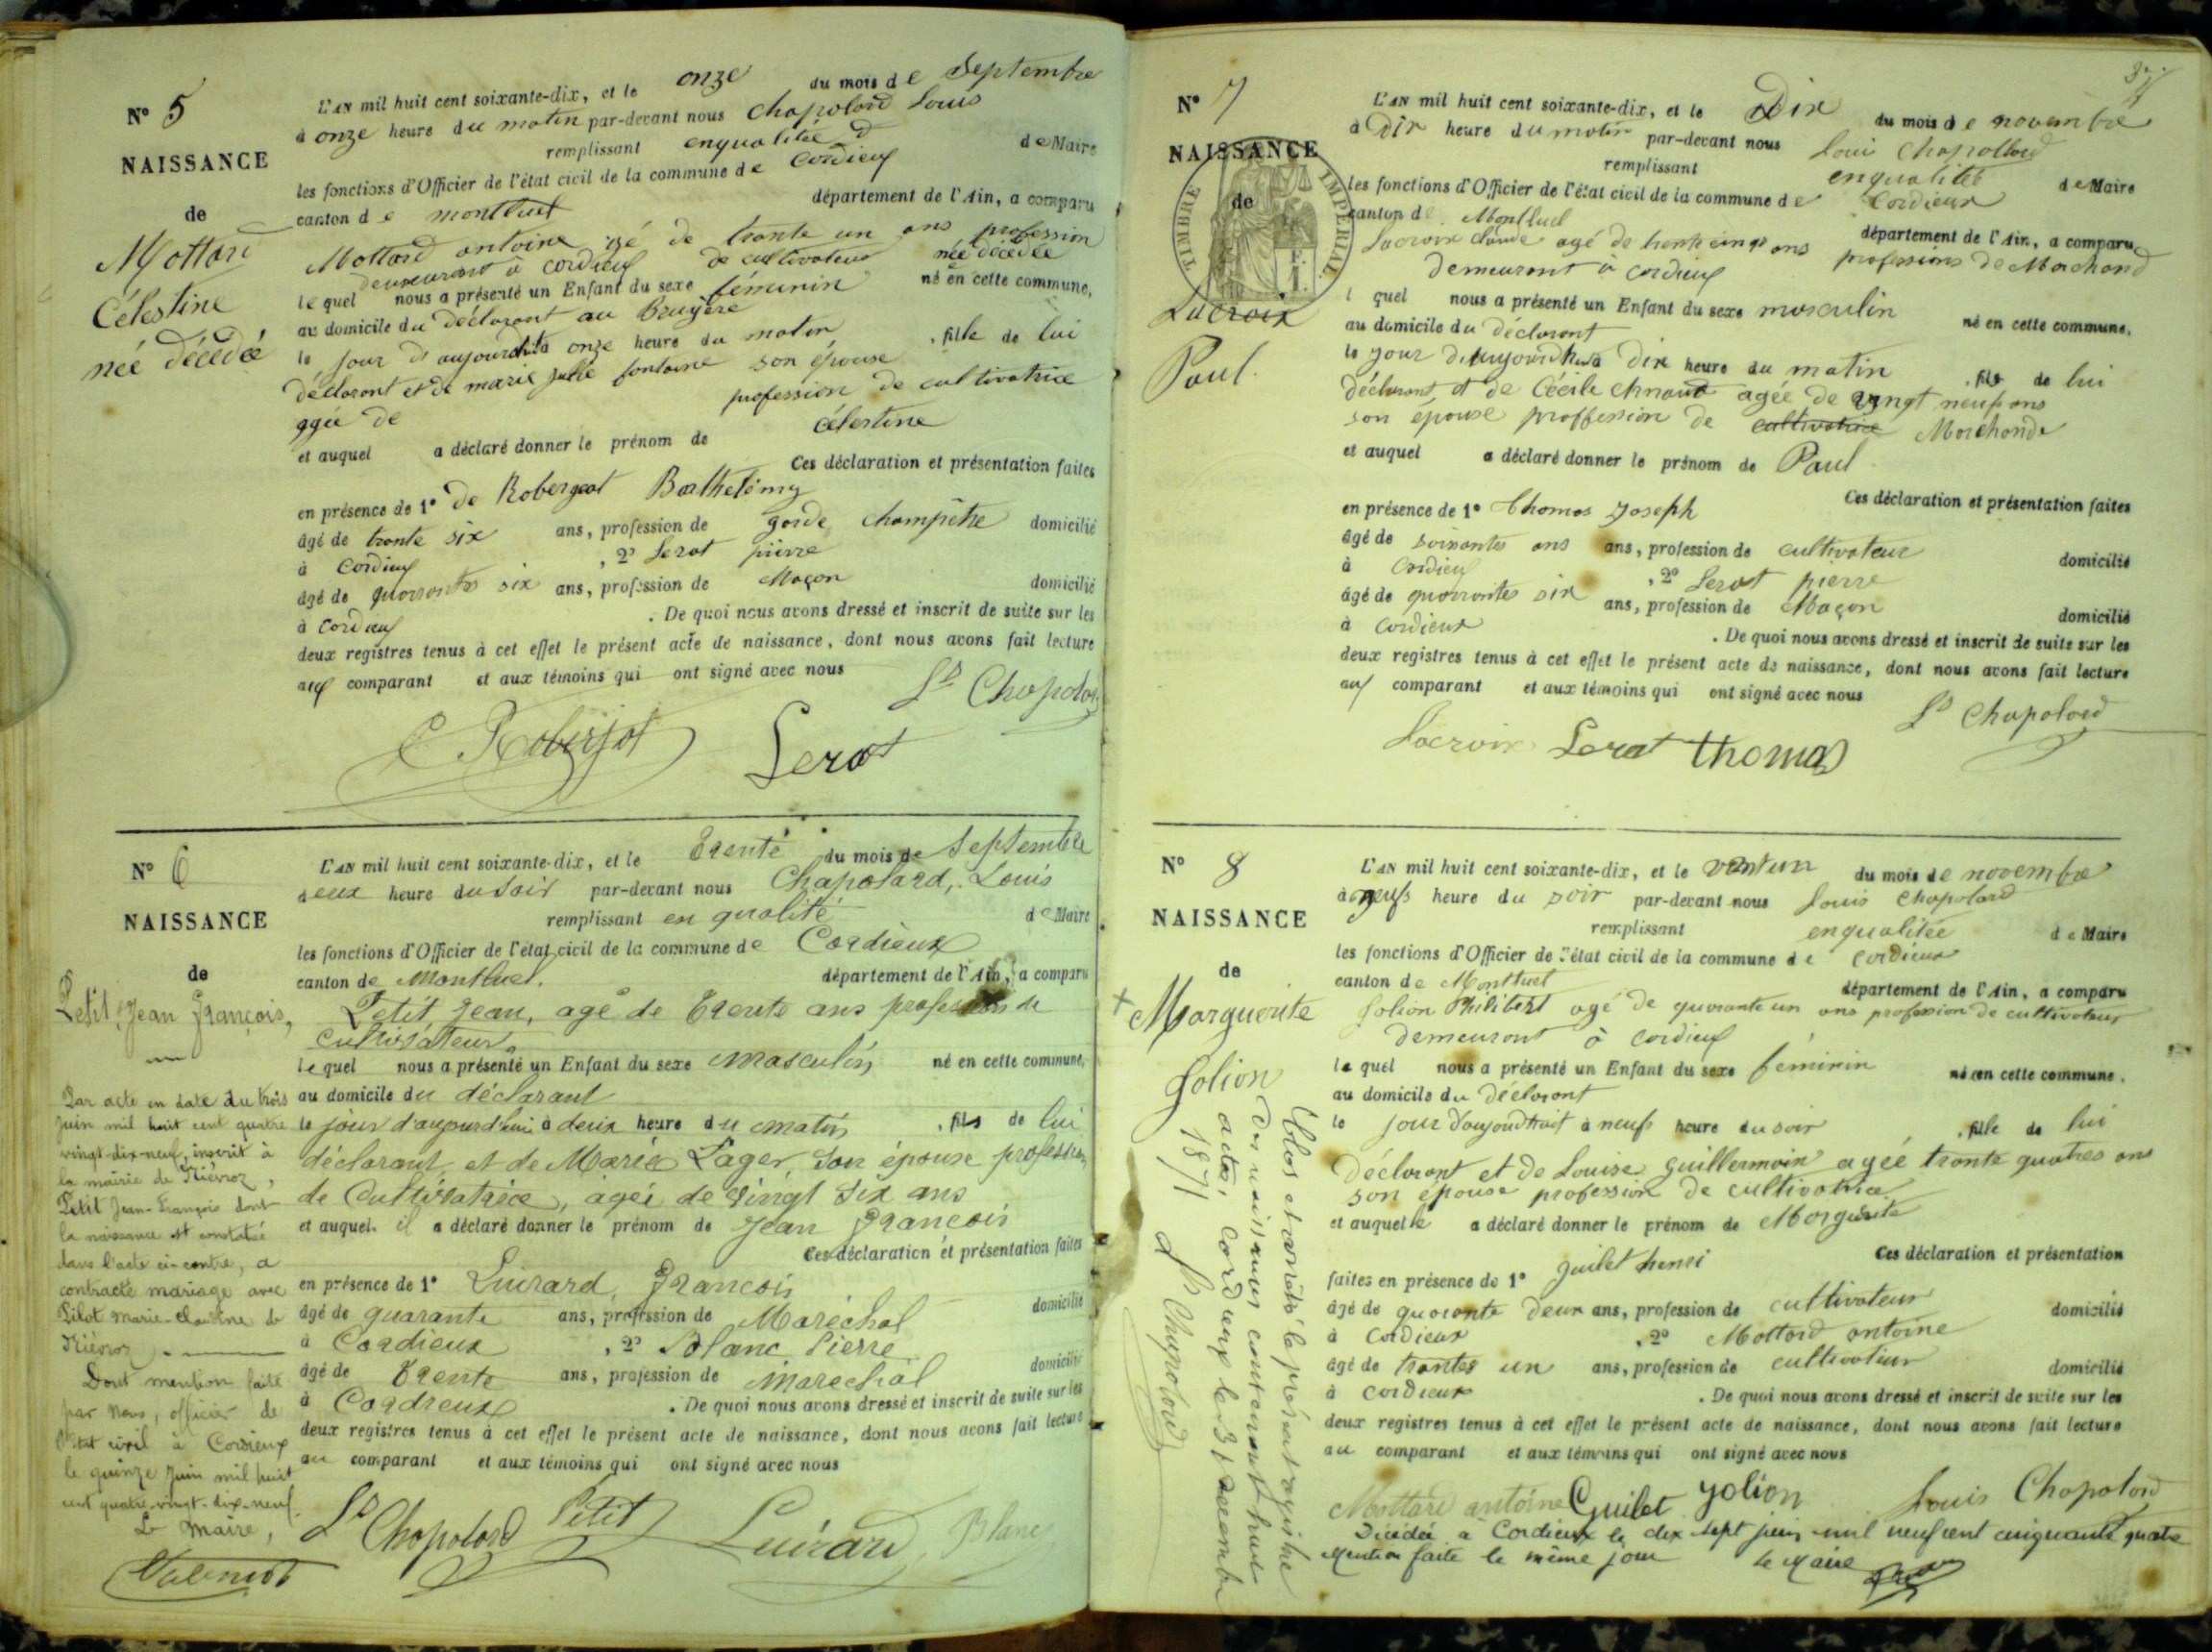 N° 5
NAISSANCE
de
Mottard
Célestine
née décédée
L'AN mil huit cent soixante-dix, et le onze du mois de Septembre
à onze heure du matin par-devant nous Chapolard Louis
remplissant enqualitée d de Maire
les fonctions d'Officier de l'état civil de la commune de Cordieux
canton de montluel département de l'Ain, a comparu
Mottard antoine agé de trante un ans profession
demeurant à cordieux de cultivateur née décédée
lequel nous a présenté un Enfant du sexe féminin né en cette commune,
au domicile du déclarant au Bruyère
le jour d'aujourdhui à onze heure du matin , fille de lui
déclarant et de marie julie fontaine son épouse
agée de profession de cultivatrice
et auquel a déclaré donner le prénom de célestine
Ces déclaration et présentation faites
en présence de 1° de Robergeot Barthelémy
âgé de trante six ans, profession de garde champêtre domicilié
à Cordieux , 2° Lerat pierre
âgé de quarrantes six ans, profession de Maçon domicilié
à Cordieux . De quoi nous avons dressé et inscrit de suite sur les
deux registres tenus à cet effet le présent acte de naissance, dont nous avons fait lecture
aux comparant et aux témoins qui ont signé avec nous
Ls Chapolard
Roberjot Lerat
N° 6
NAISSANCE
de
Petit, Jean François,
L'AN mil huit cent soixante-dix, et le Trente du mois de Septembre
deux heure du Soir par-devant nous Chapolard, Louis
remplissant en qualité de Maire
les fonctions d'Officier de l'état civil de la commune de Cordieux
canton de Montluel. département de l'Ain, a comparu
Petit Jean, agé de Trente ans profession de
cultivateur,
lequel nous a présenté un Enfant du sexe masculin, né en cette commune,
au domicile du déclarant
le jour d'aujourd'hui à deux heure du matin , fils de lui
déclarant, et de Marie Lager, Son épouse profession
de Cultivatrice, âgée de vingt Six ans
et auquel il a déclaré donner le prénom de Jean François
Ces déclaration et présentation faites
en présence de 1° Luirard, François
âgé de quarante ans, profession de Maréchal domicilié
à Cordieux , 2° Blanc Pierre
âgé de Trente ans, profession de Maréchal domicilié
à Cordieux . De quoi nous avons dressé et inscrit de suite sur les
deux registres tenus à cet effet le présent acte de naissance, dont nous avons fait lecture
au comparant et aux témoins qui ont signé avec nous
Ls Chapolard Petit Luirard Blanc
Par acte en date du trois
juin mil huit cent quatre
vingt-dix-neuf, inscrit à
la mairie de Niévroz,
Petit Jean-François dont
la naissance est constatée
dans l'acte ci-contre, a
contracté mariage avec
Pilot Marie-Claudine de
Niévroz.
Dont mention faite
par nous, officier de
l'état civil à Cordieux
le quinze juin mil huit
cent quatre-vingt-dix-neuf.
Le Maire,
N° 7
NAISSANCE
de
TIMBRE IMPERIAL
Lacroix
Paul.
L'AN mil huit cent soixante-dix, et le Dix du mois de novembre
à Dix heure du matin par-devant nous Louis Chapollard
remplissant enqualitée de Maire
les fonctions d'Officier de l'état civil de la commune de Cordieux
canton de Montluel département de l'Ain, a comparu
Lacroix agé de trente cinq ans professions de Marchand
Demeurant à cordieux
l quel nous a présenté un Enfant du sexe masculin né en cette commune,
au domicile du déclarant
le jour d'aujourdhui à dix heure du matin , fils de lui
déclarant et de Cécile agée de vingt neuf ans
son épouse proffession de cultivatrice Marchande
et auquel a déclaré donner le prénom de Paul
Ces déclaration et présentation faites
en présence de 1° Thomas Joseph
âgé de soixantes ans ans, profession de cultivateur domicilié
à Cordieux , 2° Lerat pierre
âgé de quarrantes six ans, profession de Maçon domicilié
à Cordieux . De quoi nous avons dressé et inscrit de suite sur les
deux registres tenus à cet effet le présent acte de naissance, dont nous avons fait lecture
aux comparant et aux témoins qui ont signé avec nous
Ls Chapolard
Lacroix Lerat thomas
N° 8
NAISSANCE
de
Marguerite
Jolion
L'AN mil huit cent soixante-dix, et le vantun du mois de novembre
à neufs heure du soir par-devant nous Louis Chapolard
remplissant enqualitée de Maire
les fonctions d'Officier de l'état civil de la commune de cordieux
canton de Montluel département de l'Ain, a comparu
Jolion Philibert agé de quarante un ans profession de cultivateur
demeurant à Cordieux
le quel nous a présenté un Enfant du sexe féminin né en cette commune.
au domicile du déclarant
le jour à neufs heure du soir , fille de lui
déclarant et de Louise Guillermoin agée trante quatres ans
son épouse profession de cultivatrice
et auquel le a déclaré donner le prénom de Marguerite
Ces déclaration et présentation
faites en présence de 1° Guilet henri
âgé de quarante deux ans, profession de cultivateur domicilié
à Cordieux , 2° Mottard antoine
âgé de trantes un ans, profession de cultivateur domicilié
à cordieux . De quoi nous avons dressé et inscrit de suite sur les
deux registres tenus à cet effet le présent acte de naissance, dont nous avons fait lecture
au comparant et aux témoins qui ont signé avec nous
Mottard antoine Guilet Jolion Louis Chapolard
Décédée à Cordieux le dix sept juin mil neuf cent cinquante quatre
Mention faite le même jour le Maire
Clos et arrêté le présent registre
des naissances contenant huit
actes, Cordieux le 31 décembre
1871 Ls Chapolard